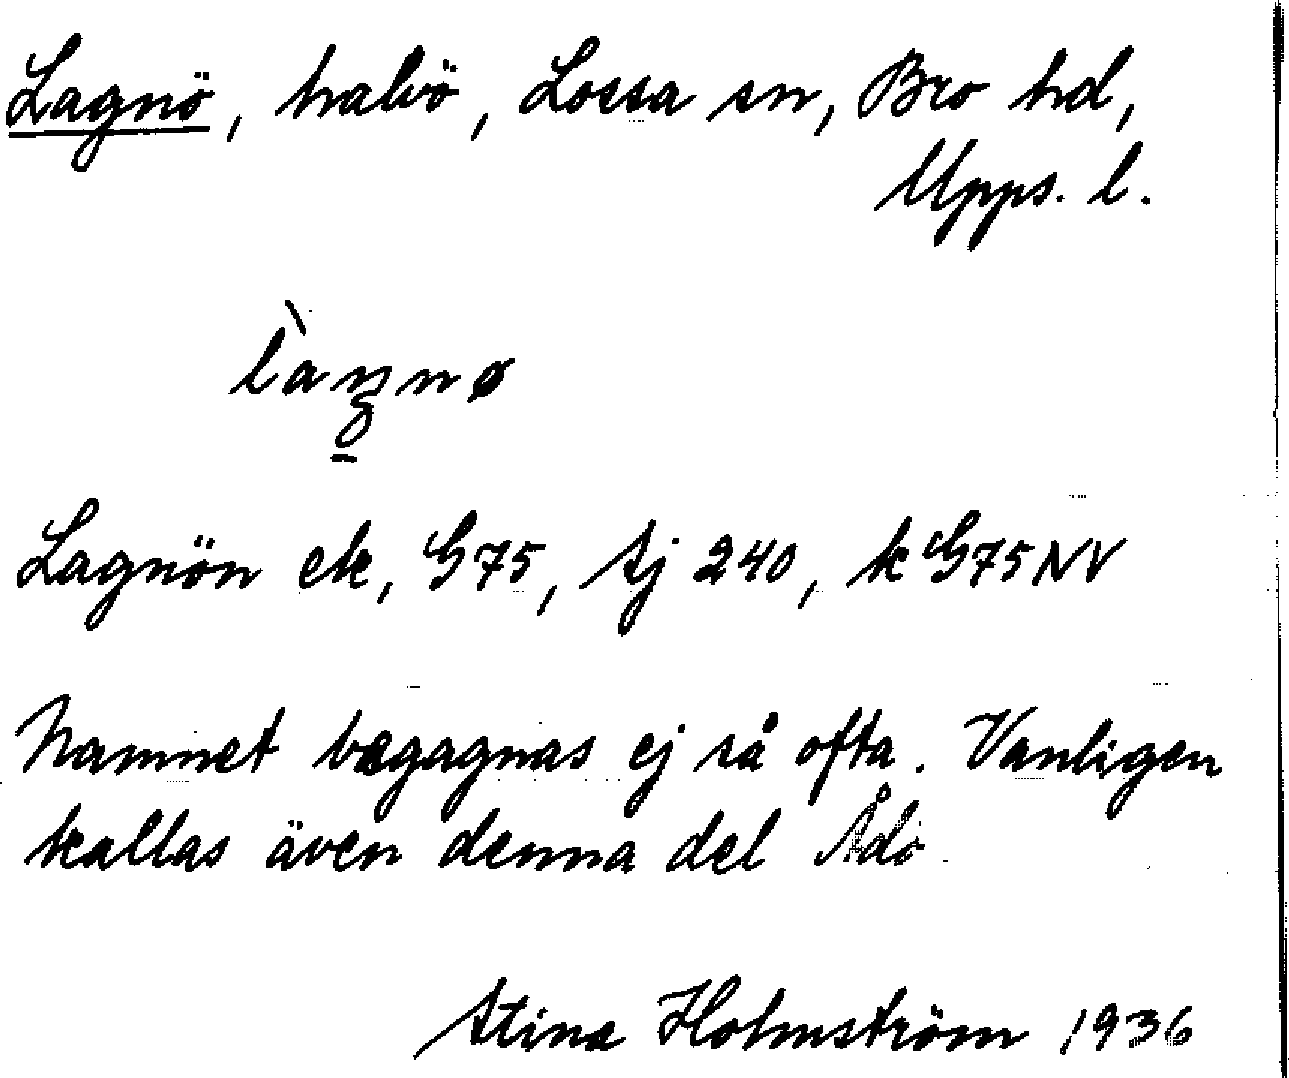 Lagnö, halvö, Lossa sn, Bro hd,
Upps. l.
Lagnön ek, G75, sj 240, k G75NV
Namnet begagnas ej så ofta. Vanligen
kallas även denna del Ådö
Stina Holmström 1936